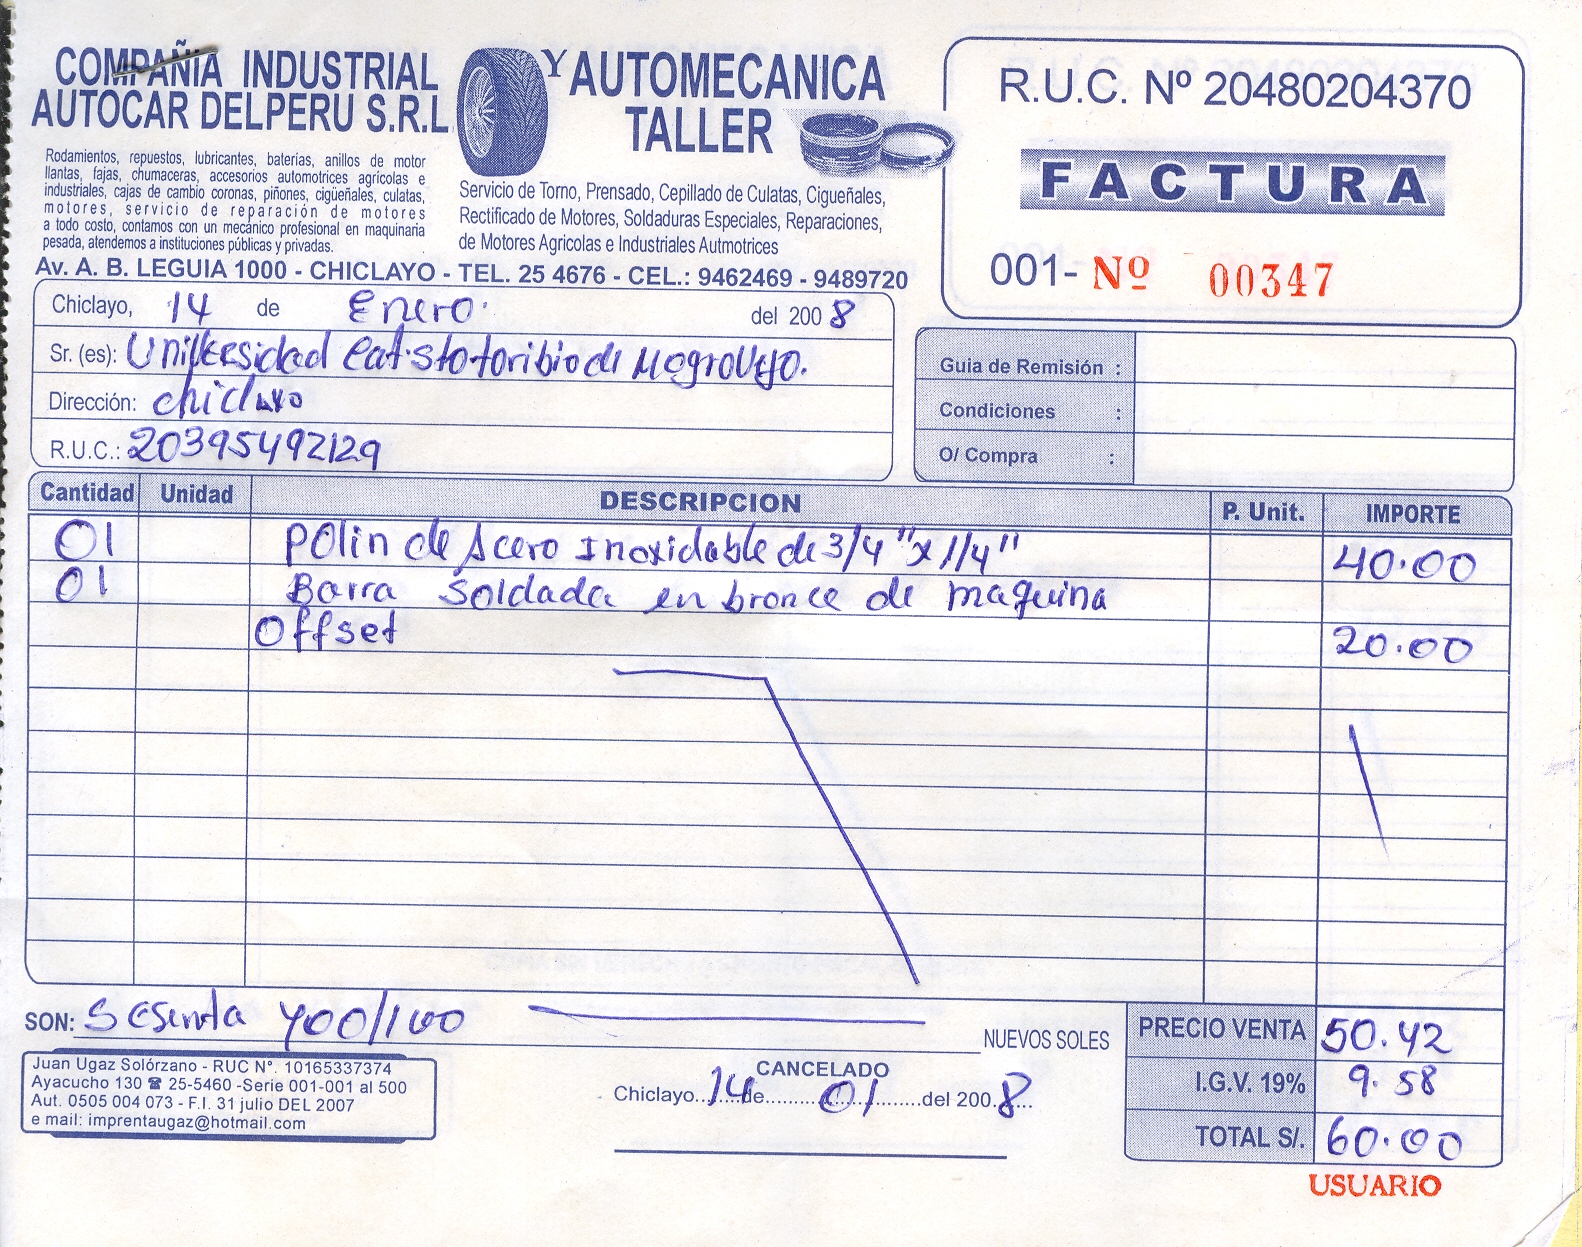 COMPAÑIA INDUSTRIAL
AUTOCAR DELPERU S.R.L
Y AUTOMECANICA
TALLER
Rodamientos, repuestos, lubricantes, baterías, anillos de motor
llantas, fajas, chumaceras, accesorios automotrices agrícolas e
industriales, cajas de cambio coronas, piñones, cigüeñales, culatas,
motores, servicio de reparación de motores
a todo costo, contamos con un mecánico profesional en maquinaria
pesada, atendemos a instituciones públicas y privadas.
Servicio de Torno, Prensado, Cepillado de Culatas, Cigueñales,
Rectificado de Motores, Soldaduras Especiales, Reparaciones,
de Motores Agricolas e Industriales Autmotrices
Av. A. B. LEGUIA 1000 - CHICLAYO - TEL. 25 4676 - CEL.: 9462469 - 9489720
R.U.C. Nº 20480204370
FACTURA
001- Nº 00347
Chiclayo, 14 de Enero. del 2008
Sr. (es): Universidad Cat. Sto toribio de Mogrovejo.
Dirección: chiclayo
R.U.C.: 20395492129
Guia de Remisión :
Condiciones :
O/ Compra :
Cantidad Unidad DESCRIPCION P. Unit. IMPORTE
01 Polin de Acero Inoxidable de 3/4" x 1/4" 40.00
01 Barra Soldada en bronce de maquina
Offset 20.00
SON: Sesenta y 00/100 NUEVOS SOLES
PRECIO VENTA 50.42
I.G.V. 19% 9.58
TOTAL S/. 60.00
Juan Ugaz Solórzano - RUC N°. 10165337374
Ayacucho 130 ☎ 25-5460 -Serie 001-001 al 500
Aut. 0505 004 073 - F.I. 31 julio DEL 2007
e mail: imprentaugaz@hotmail.com
CANCELADO
Chiclayo...14...de.........01.......del 200.8...
USUARIO